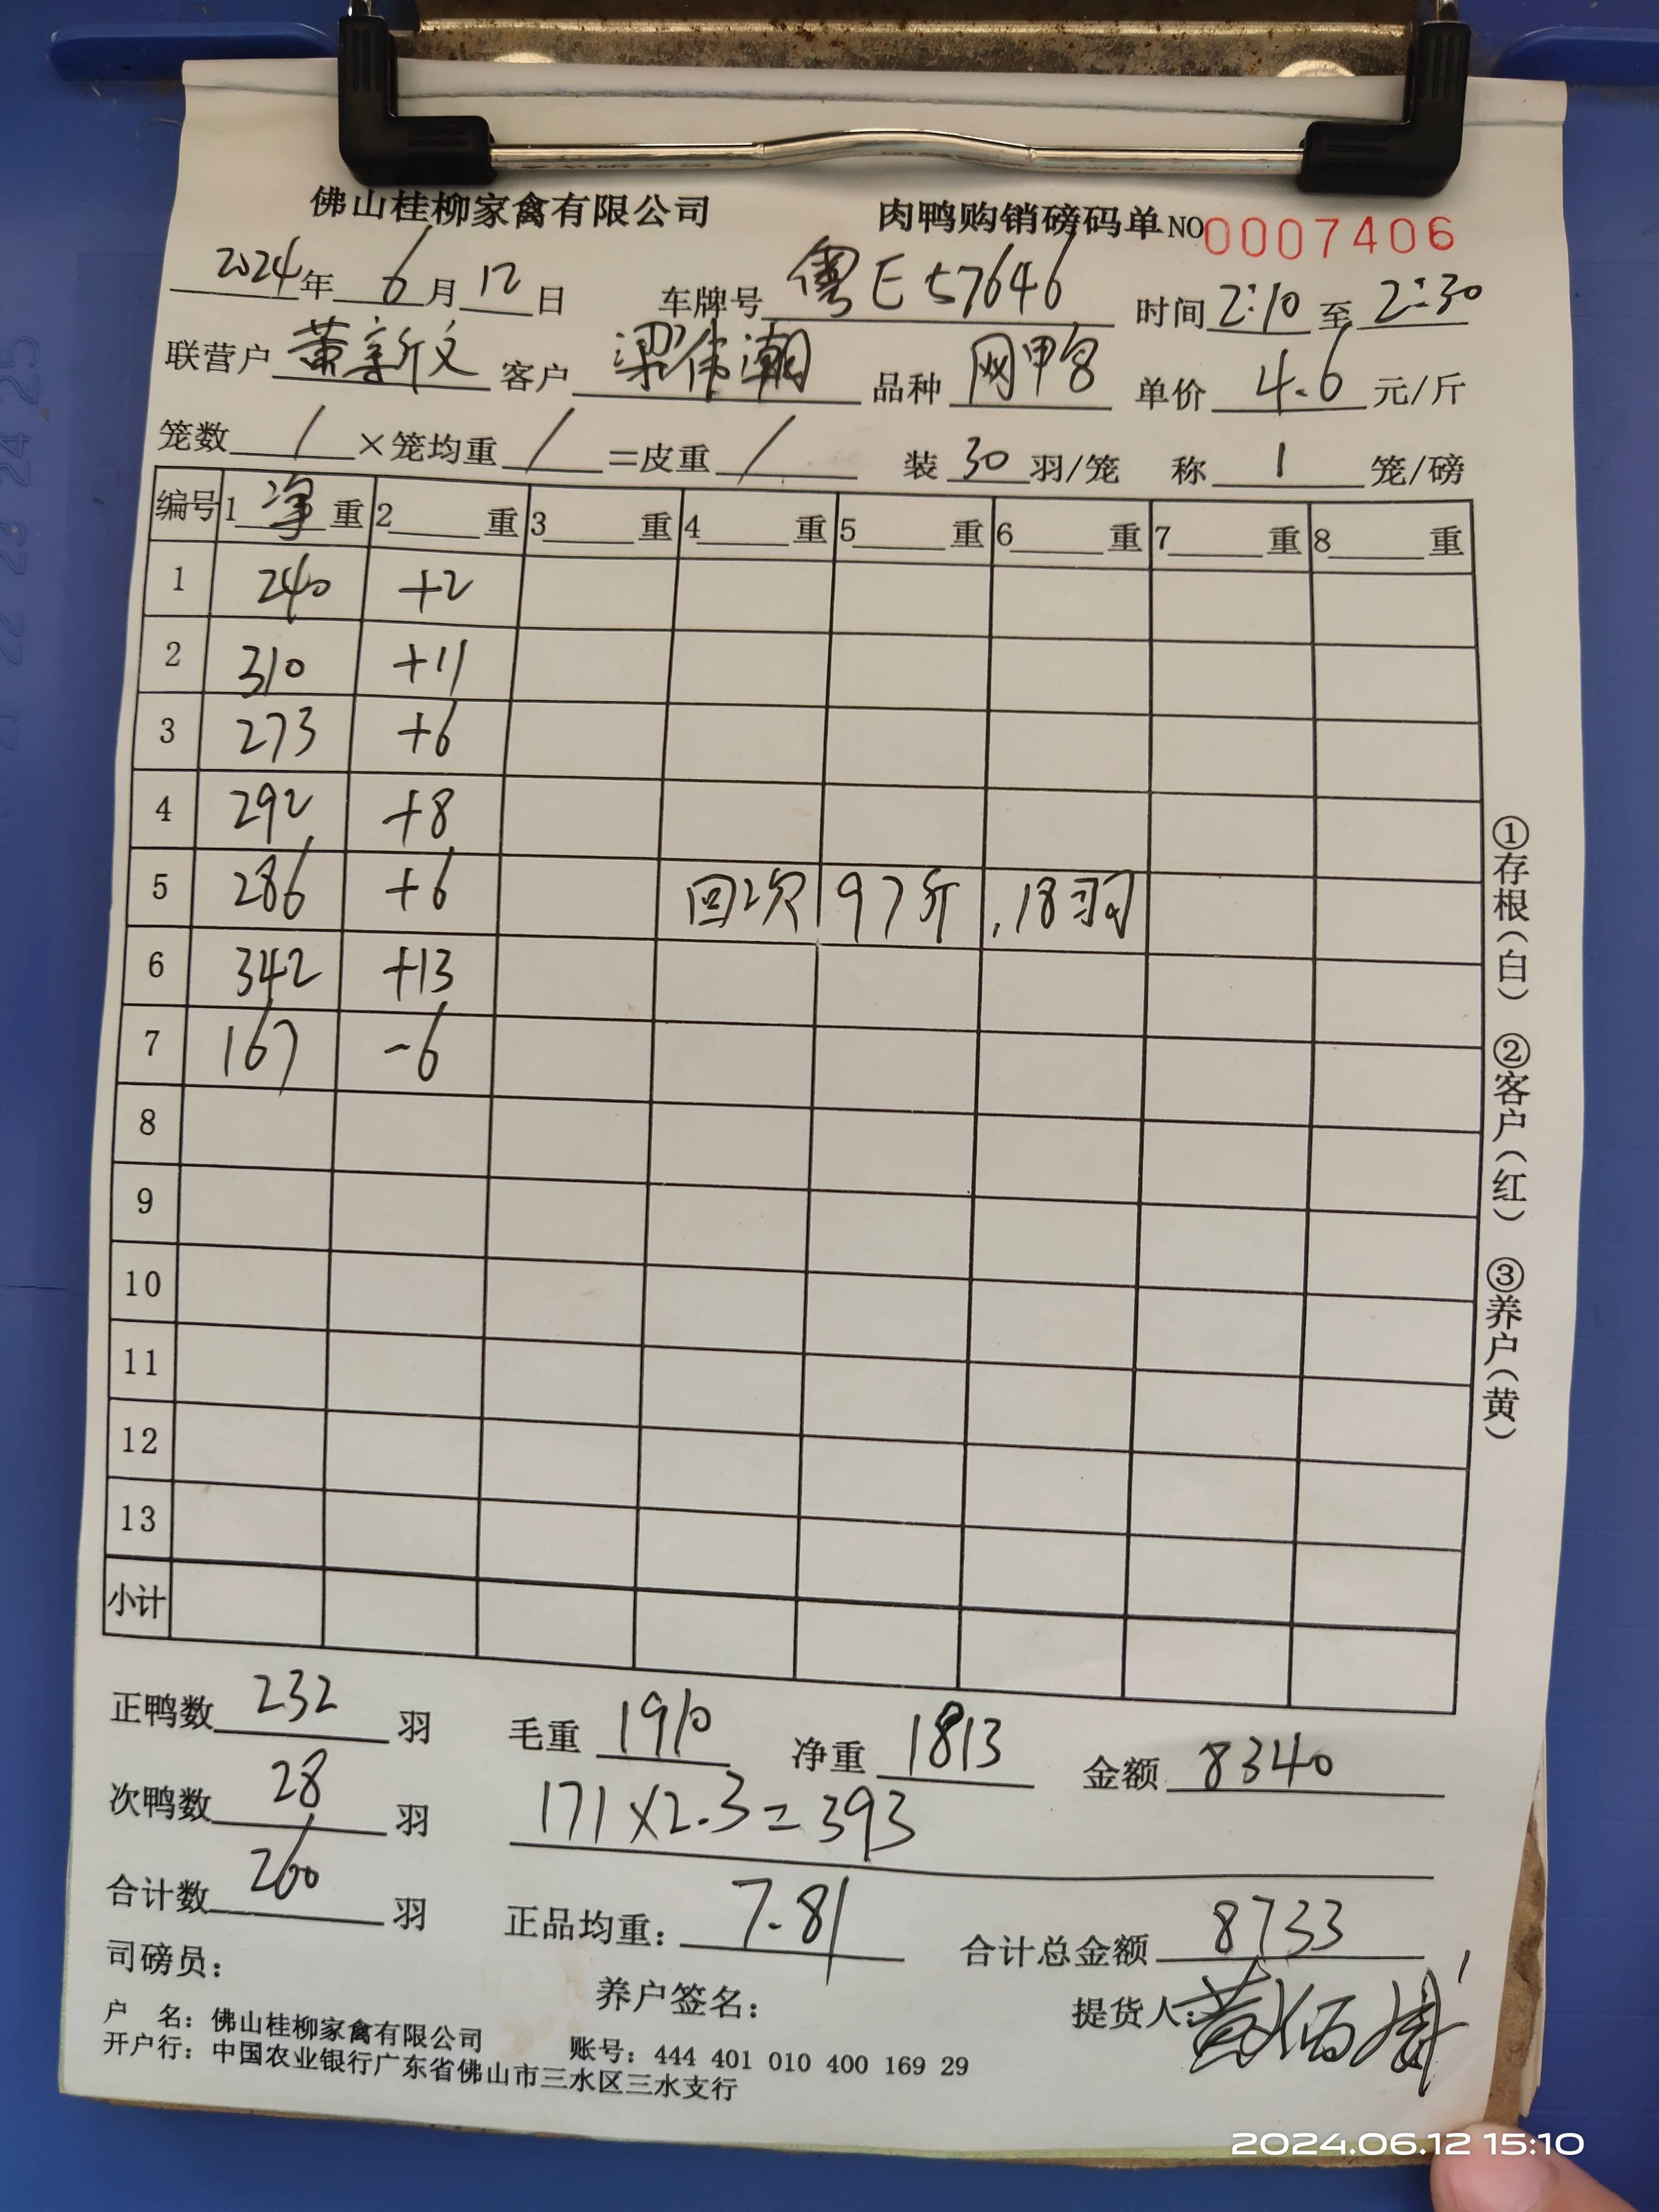 佛山桂柳家禽有限公司 肉鸭购销磅码单 NO 0007406
2024年 6月 12日 车牌号 粤E57646 时间 2:10 至 2:30
联营户 黄新文 客户 梁伟潮 品种 单价 4.6 元/斤
笼数 / ×笼均重 / =皮重 / 装 30 羽/笼 称 1 笼/磅
编号 1 净 重 2 重 3 重 4 重 5 重 6 重 7 重 8 重
1 240 +2
2 310 +11
3 273 +6
4 292 +8
5 286 +6 回次 97斤 .18羽
6 342 +13
7 167 -6
8
9
10
11
12
13
小计
正鸭数 232 羽 毛重 1910 净重 1813 金额 8340
次鸭数 28 羽 171×2.3=393
合计数 260 羽 正品均重: 7.81 合计总金额 8733
司磅员: 养户签名: 提货人:
户 名: 佛山桂柳家禽有限公司 账号: 444 401 010 400 169 29
开户行: 中国农业银行广东省佛山市三水区三水支行
①存根(白) ②客户(红) ③养户(黄)
2024.06.12 15:10
25 24 23 22 21